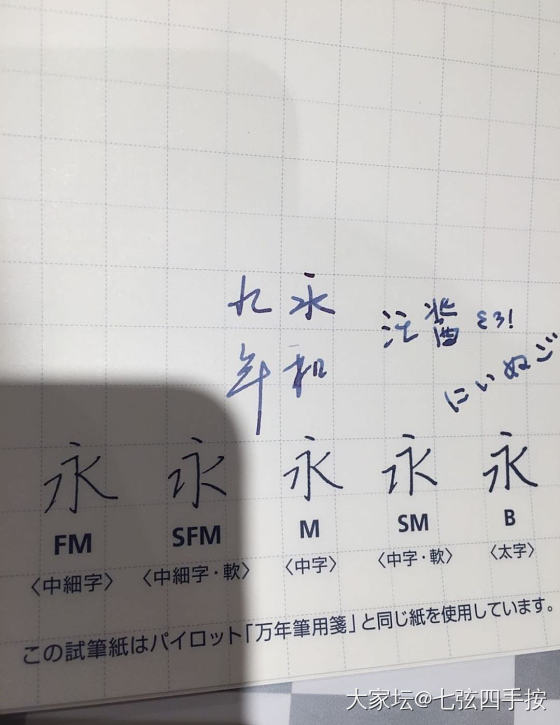 永
年 和
にいぬご
永 永 永 永 永
FM SFM M SM B
〈中細字〉 〈中細字・軟〉 〈中字〉 〈中字・軟〉 〈太字〉
この試筆紙はパイロット「万年筆用箋」と同じ紙を使用しています。
大家坛@七弦四手按